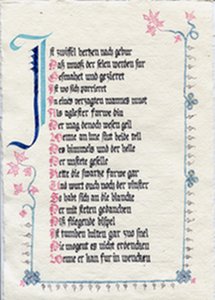 Ist zwiffel hertzen nach gebur
Daß muosß der selen werden sur
Gesmahet und gezieret
Ist wo sich parrieret
In eines verzagten mannes muot
Als aglester farwe duo
Der mag denoch wesen geil
Wenne an ime sint beide teil
Des himmels und der helle
Der unstete geselle
Hette die swartze farwe gar
Und wurt ouch noch der vinster
So habe sich an die blancke
Der mit steten gedancken
Diß fliegende bispel
Ist tumben luten gar zuo snel
Sie mogent es nicht erdencken
Wenne er kan fur in wencken